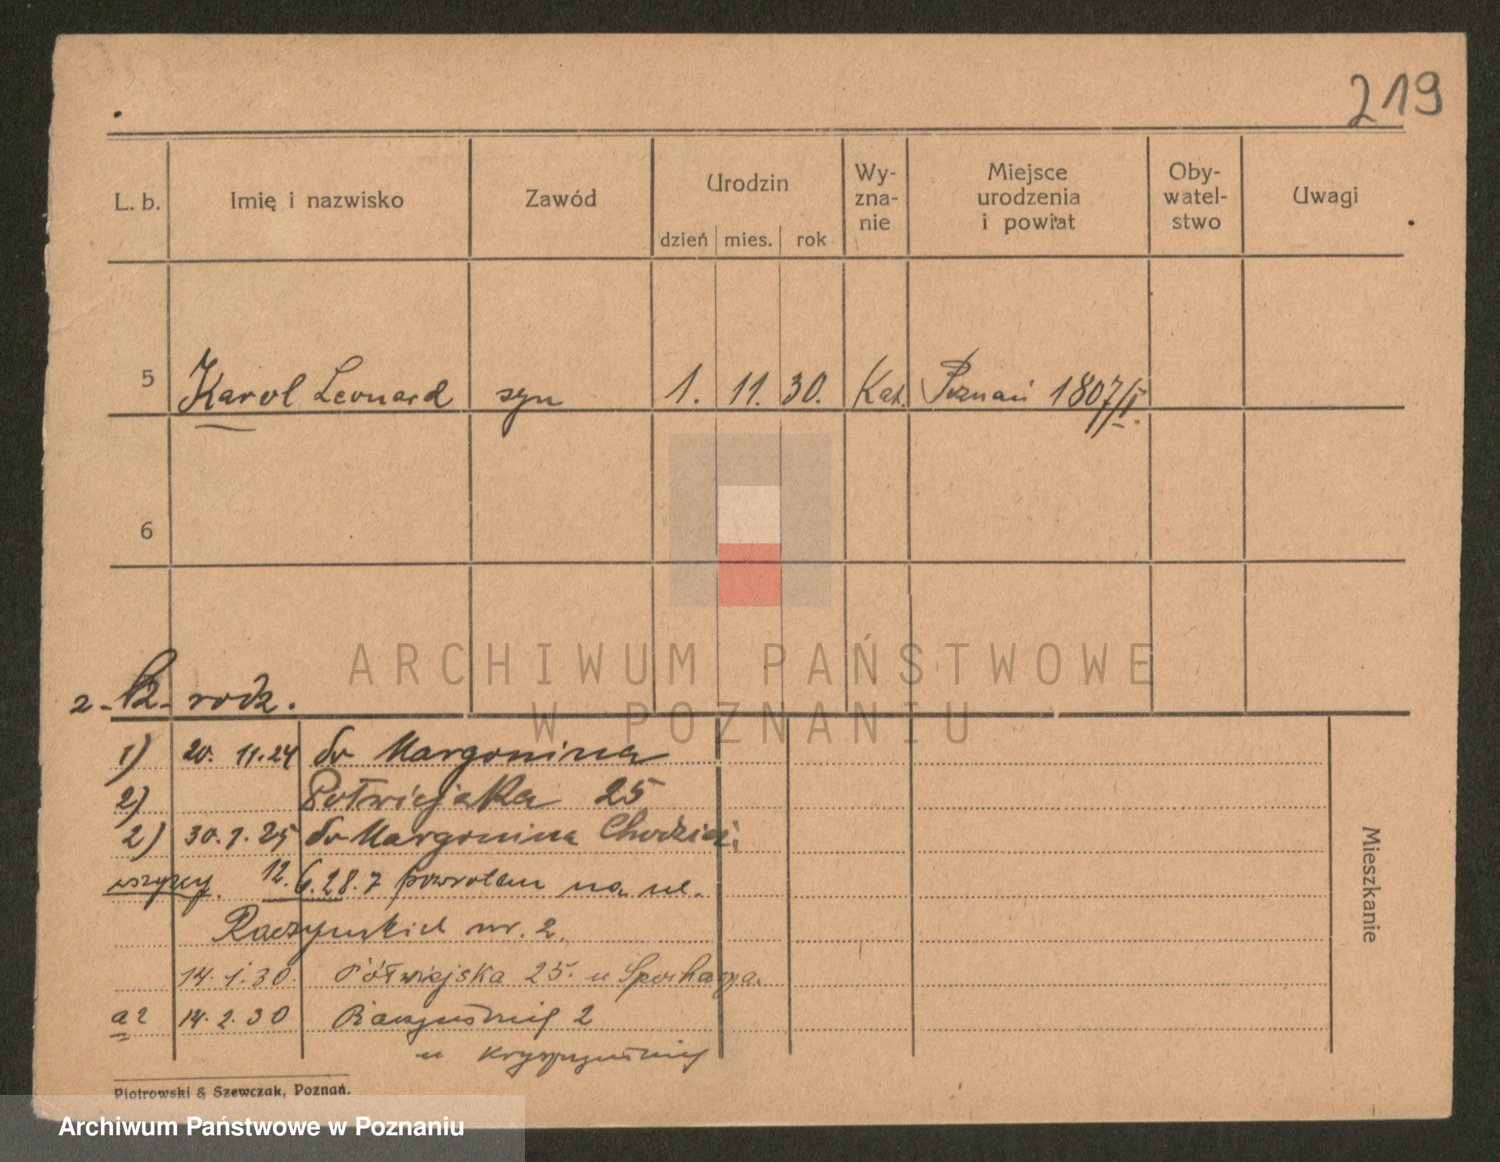 219
L. b. Imię i nazwisko Zawód Urodzin dzień mies. rok Wy-zna-nie Miejsce urodzenia i powiat Oby-watel-stwo Uwagi
5 Karol Leonard syn 1. 11. 30. Kat. Poznań 1807/II.
6
ARCHIWUM PAŃSTWOWE
W POZNANIU
rodz.
1) 20. 11.24 do Margonina
2) Półwiejska 25
2) 30.7.25 do Margonina Chodzież
wszyscy. 12.6.28. powrotem na ul.
Raczyńskich nr. 2.
14.1.30. Półwiejska 25. u
14.2.30 2
u
Mieszkanie
Piotrowski & Szewczak, Poznań.
Archiwum Państwowe w Poznaniu